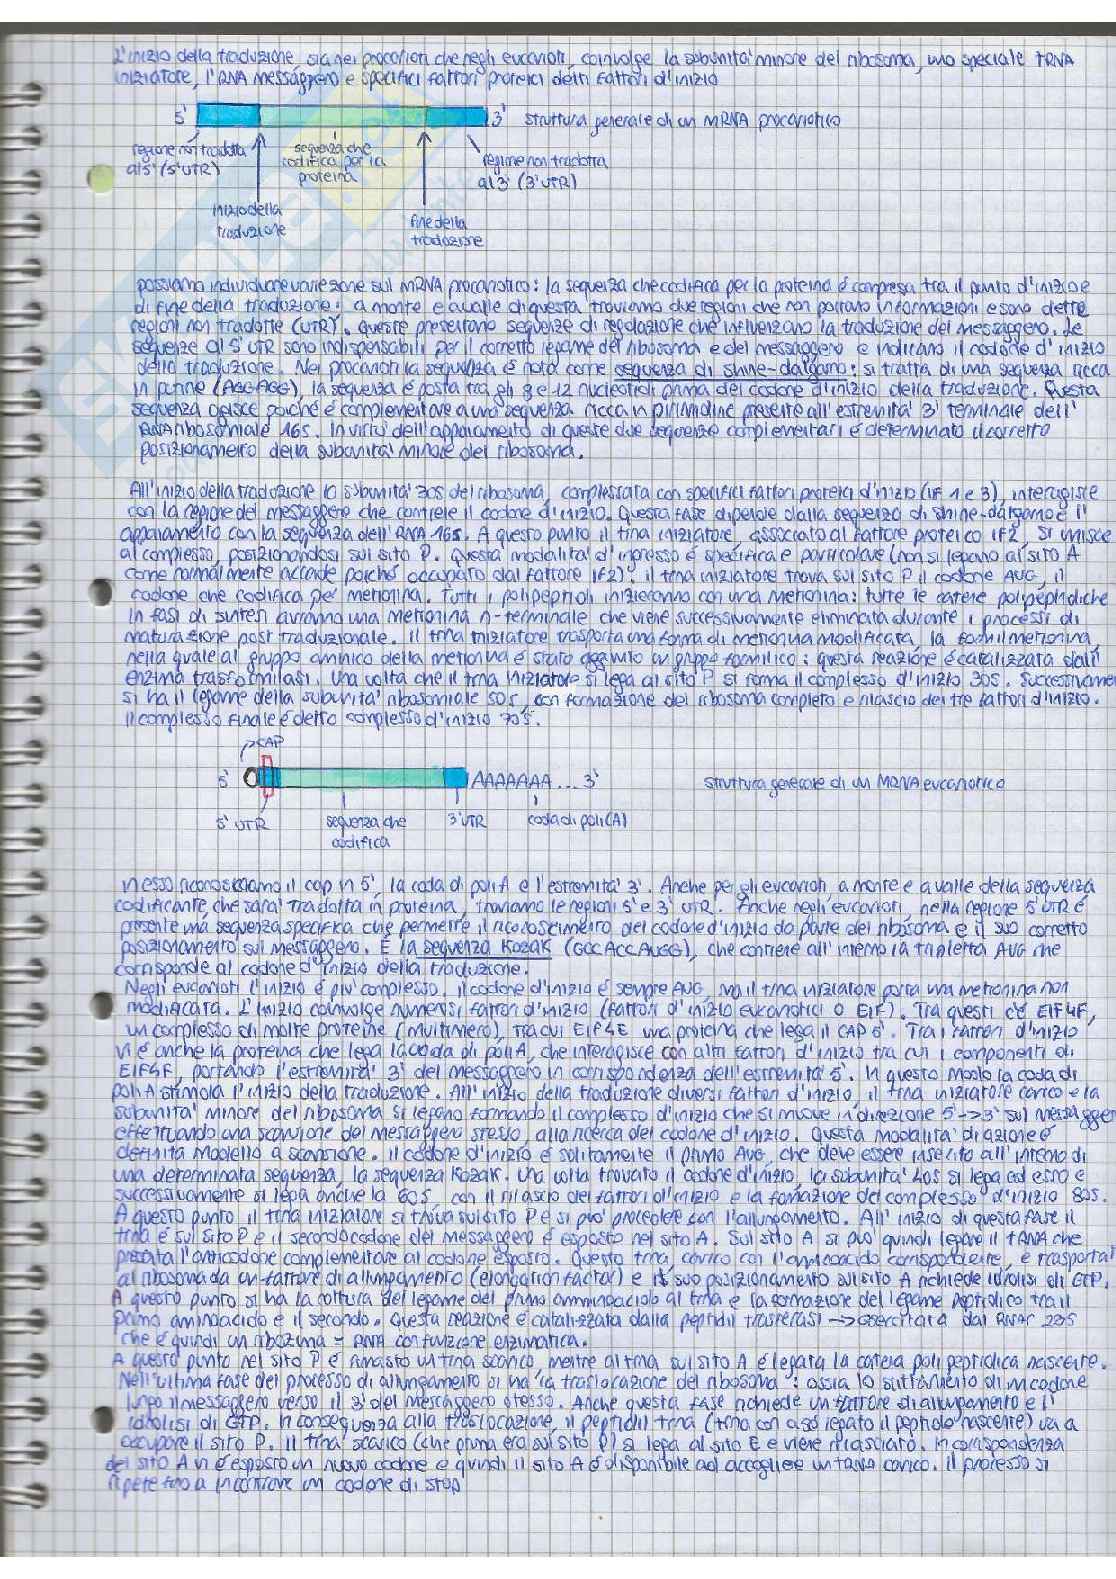 L'inizio della traduzione, sia nei procarioti che negli eucarioti, coinvolge la subunita' minore del ribosoma, uno speciale tRNA
iniziatore, l'RNA messaggero e specifici fattori proteici detti fattori d'inizio
5' 3' struttura generale di un mRNA procariotico
regione non tradotta al 5' (5' UTR)
sequenza che codifica per la proteina
regione non tradotta al 3' (3' UTR)
inizio della traduzione
fine della traduzione
possiamo individuare varie zone sul mRNA procariotico: la sequenza che codifica per la proteina è compresa tra il punto d'inizio e
di fine della traduzione; a monte e a valle di questa troviamo due regioni che non portano informazioni e sono dette
regioni non tradotte (UTR). Queste presentano sequenze di regolazione che influenzano la traduzione del messaggero. Le
sequenze al 5' UTR sono indispensabili per il corretto legame del ribosoma e del messaggero e indicano il codone d'inizio
della traduzione. Nei procarioti la sequenza è nota come sequenza di shine-dalgarno: si tratta di una sequenza ricca
in purine (AGGAGG), la sequenza è posta tra gli 8 e 12 nucleotidi prima del codone d'inizio della traduzione. Questa
sequenza agisce poiché è complementare a una sequenza ricca in pirimidine presente all'estremita' 3' terminale dell'
RNA ribosomiale 16S. In virtù dell'appaiamento di queste due sequenze complementari è determinato il corretto
posizionamento della subunita' minore del ribosoma.
All'inizio della traduzione la subunita' 30S del ribosoma, complessata con specifici fattori proteici d'inizio (IF 1 e 3), interagisce
con la regione del messaggero che contiene il codone d'inizio. Questa fase dipende dalla sequenza di shine-dalgarno e l'
appaiamento con la sequenza dell'RNA 16S. A questo punto il tRNA iniziatore, associato al fattore proteico IF2, si unisce
al complesso, posizionandosi sul sito P. Questa modalita' d'ingresso è specifica e particolare (non si legano al sito A
come normalmente accade poiché occupato dal fattore IF2): il tRNA iniziatore trova sul sito P il codone AUG, il
codone che codifica per metionina. Tutti i polipeptidi inizieranno con una metionina: tutte le catene polipeptidiche
in fasi di sintesi avranno una metionina n-terminale che viene successivamente eliminata durante i processi di
maturazione post traduzionale. Il tRNA iniziatore trasporta una forma di metionina modificata, la formilmetionina,
nella quale al gruppo aminico della metionina è stato aggiunto un gruppo formilico: questa reazione è catalizzata dall'
enzima trasformilasi. Una volta che il tRNA iniziatore si lega al sito P si forma il complesso d'inizio 30S. Successivamen
si ha il legame della subunita' ribosomiale 50S, con formazione del ribosoma completo e rilascio dei tre fattori d'inizio.
Il complesso finale è detto complesso d'inizio 70S.
CAP
5' AAAAAAA...3' struttura generale di un mRNA eucariotico
5' UTR sequenza che codifica 3' UTR coda di poli(A)
In esso riconosciamo il cap in 5', la coda di poli A e l'estremita' 3'. Anche per gli eucarioti, a monte e a valle della sequenza
codificante, che sara' tradotta in proteina, troviamo le regioni 5' e 3' UTR. Anche negli eucarioti, nella regione 5' UTR è
presente una sequenza specifica che permette il riconoscimento del codone d'inizio da parte del ribosoma e il suo corretto
posizionamento sul messaggero. È la sequenza Kozak (GCCACCAUGG), che contiene all'interno la tripletta AUG che
corrisponde al codone d'inizio della traduzione.
Negli eucarioti l'inizio è piu' complesso. Il codone d'inizio è sempre AUG, ma il tRNA iniziatore porta una metionina non
modificata. L'inizio coinvolge numerosi fattori d'inizio (fattori d'inizio eucariotici o EIF). Tra questi c'è EIF4F,
un complesso di molte proteine (multimero), tra cui EIF4E una proteina che lega il CAP 5'. Tra i fattori d'inizio
vi è anche la proteina che lega la coda di poli A, che interagisce con altri fattori d'inizio tra cui i componenti di
EIF4F, portando l'estremita' 3' del messaggero in corrispondenza dell'estremita' 5'. In questo modo la coda di
poli A stimola l'inizio della traduzione. All'inizio della traduzione diversi fattori d'inizio, il tRNA iniziatore carico e la
subunita' minore del ribosoma si legano formando il complesso d'inizio che si muove in direzione 5'->3' sul messagge
effettuando una scansione del messaggero stesso, alla ricerca del codone d'inizio. Questa modalita' di azione è
definita modello a scansione. Il codone d'inizio è solitamente il primo AUG, che deve essere inserito all'interno di
una determinata sequenza, la sequenza Kozak. Una volta trovato il codone d'inizio, la subunita' 40S si lega ad esso e
successivamente si lega anche la 60S, con il rilascio dei fattori d'inizio e la formazione del complesso d'inizio 80S.
A questo punto il tRNA iniziatore si trova sul sito P e si puo' procedere con l'allungamento. All'inizio di questa fase il
tRNA è sul sito P e il secondo codone del messaggero è esposto nel sito A. Sul sito A si puo' quindi legare il tRNA che
presenta l'anticodone complementare al codone esposto. Questo tRNA, carico con l'aminoacido corrispondente, è trasporta
al ribosoma da un fattore di allungamento (elongation factor) e il suo posizionamento sul sito A richiede idrolisi di GTP.
A questo punto si ha la rottura del legame del primo amminoacido al tRNA e la formazione del legame peptidico tra il
primo aminoacido e il secondo. Questa reazione è catalizzata dalla peptidil trasferasi -> esercitata dal RNAr 23S
che è quindi un ribozima = RNA con funzione enzimatica.
A questo punto nel sito P è rimasto un tRNA scarico, mentre al tRNA sul sito A è legata la catena polipeptidica nascente.
Nell'ultima fase del processo di allungamento si ha la traslocazione del ribosoma: ossia lo slittamento di un codone
lungo il messaggero verso il 3' del messaggero stesso. Anche questa fase richiede un fattore di allungamento e l'
idrolisi di GTP. In conseguenza alla traslocazione, il peptidil tRNA (tRNA con a sé legato il peptide nascente) va a
occupare il sito P. Il tRNA scarico (che prima era sul sito P) si lega al sito E e viene rilasciato. In corrispondenza
del sito A vi è esposto un nuovo codone e quindi il sito A è disponibile ad accogliere un tRNA carico. Il processo si
ripete fino a incontrare un codone di stop